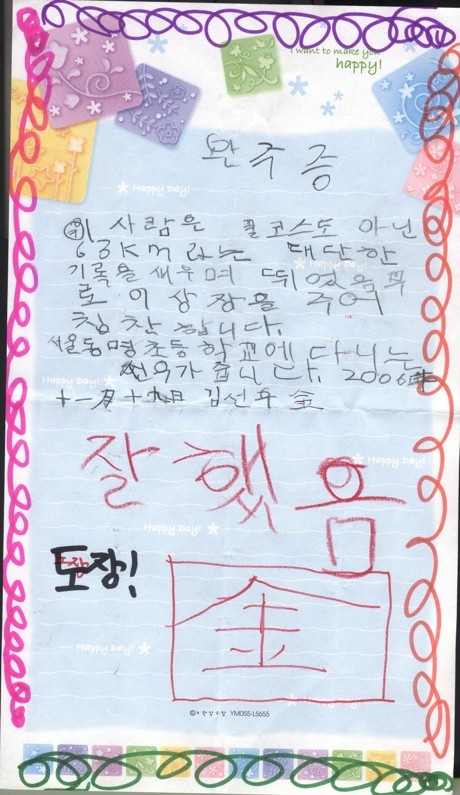 I want to make you
happy!
완주증
Happy Day!
이 사람은 풀코스도 아닌
63KM 라는 대단한
기록을 세우며 뛰었음므
로 이 상장을 주어
칭찬합니다.
서울동명초등학교에 다니는
선우가 줍니다. 2006年
十一月 十九日 김선우 金
Happy Day!
잘했음
Happy Day!
Happy Day!
도장!
金
Happy Day!
Happy Day!
YM055-LS655